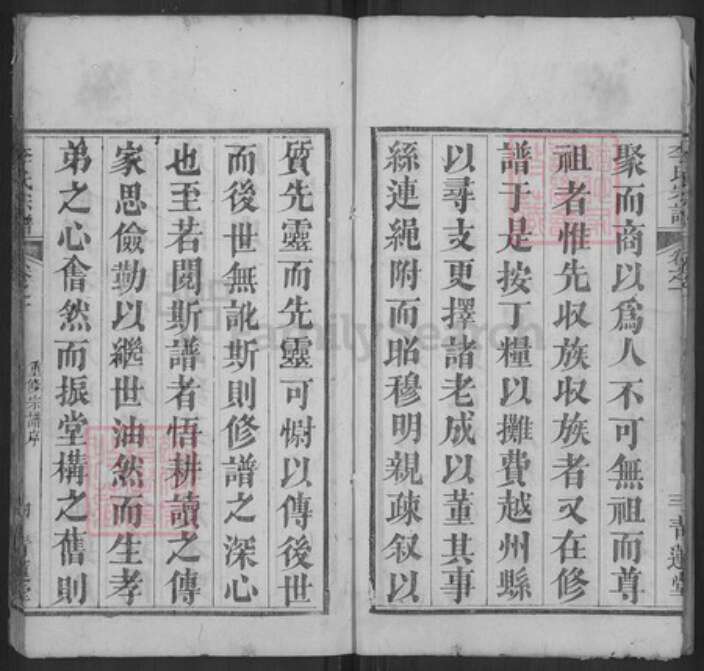 李氏宗譜
卷之一
三
青蓮堂
聚而商以為人不可無祖而尊
祖者惟先収族収族者又在修
譜于是按丁糧以攤費越州縣
以尋支更擇諸老成以董其事
絲連繩附而昭穆明親疎叙以
質先靈而先靈可慰以傳後世
而後世無訛斯則修譜之深心
也至若閱斯譜者悟耕讀之傳
家思儉勤以繼世油然而生孝
弟之心奮然而振堂構之舊則
李氏宗譜
重修宗譜序
青蓮堂
FamilySearch